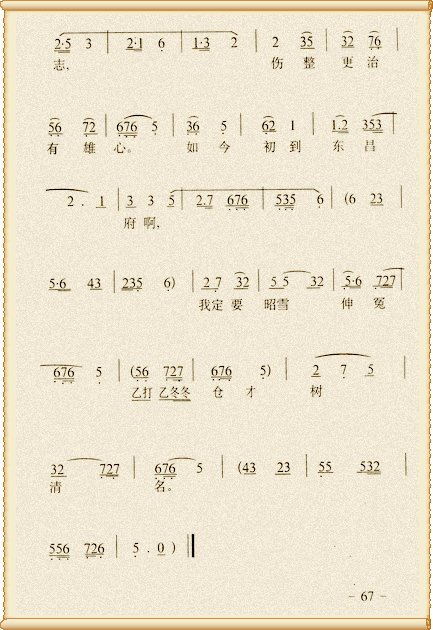 2·5 3 | 2·1 6 | 1·3 2 | 2 35 | 32 76 |
志, 伤 整 更 治
56 72 | 676 5 | 36 5 | 62 1 | 1.2 353 |
有 雄 心。 如 今 初 到 东 昌
2 . 1 | 3 3 5 | 2.7 676 | 535 6 | (6 23 |
府 啊,
5·6 43 | 235 6) | 2 7 32 | 5 5 32 | 5·6 727 |
我定 要 昭雪 伸 冤
676 5 | (56 727 | 676 5) | 2 7 5 |
乙打 乙冬冬 仓 才 树
32 727 | 676 5 | (43 23 | 55 532 |
清 名。
556 726 | 5 . 0 ) ‖
- 67 -